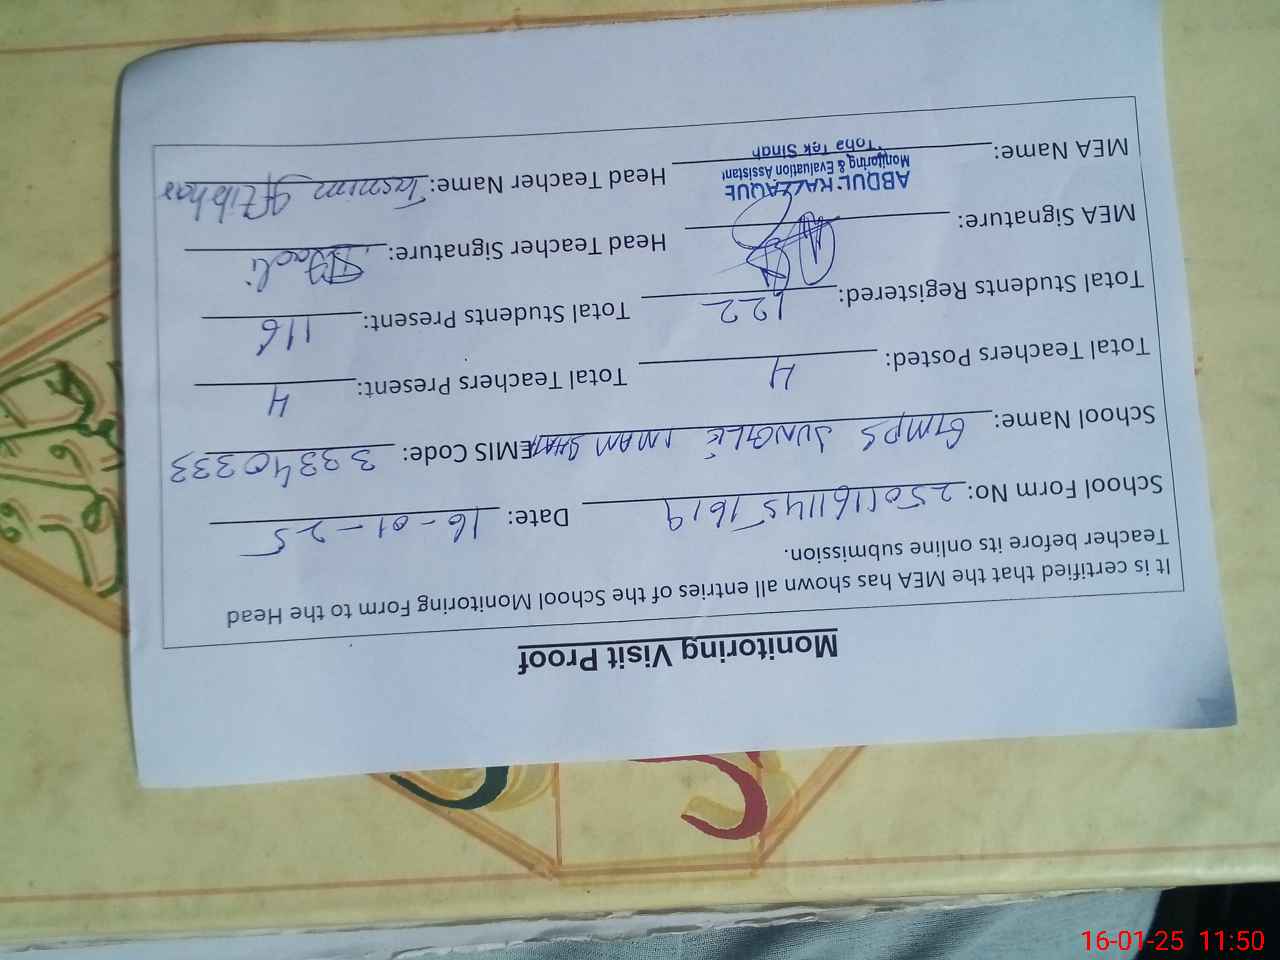 Monitoring Visit Proof
It is certified that the MEA has shown all entries of the School Monitoring Form to the Head
Teacher before its online submission.
School Form No: 2501161145 1619 Date: 16-01-25
School Name: GMPS JUNGLE IMAM SHAH EMIS Code: 33340333
Total Teachers Posted: 4 Total Teachers Present: 4
Total Students Registered: 122 Total Students Present: 116
MEA Signature: Head Teacher Signature:
MEA Name: ABDUL RAZZAQUE Head Teacher Name: Tasnim Iftikhar
Monitoring & Evaluation Assistant
Toba Tek Singh
16-01-25 11:50